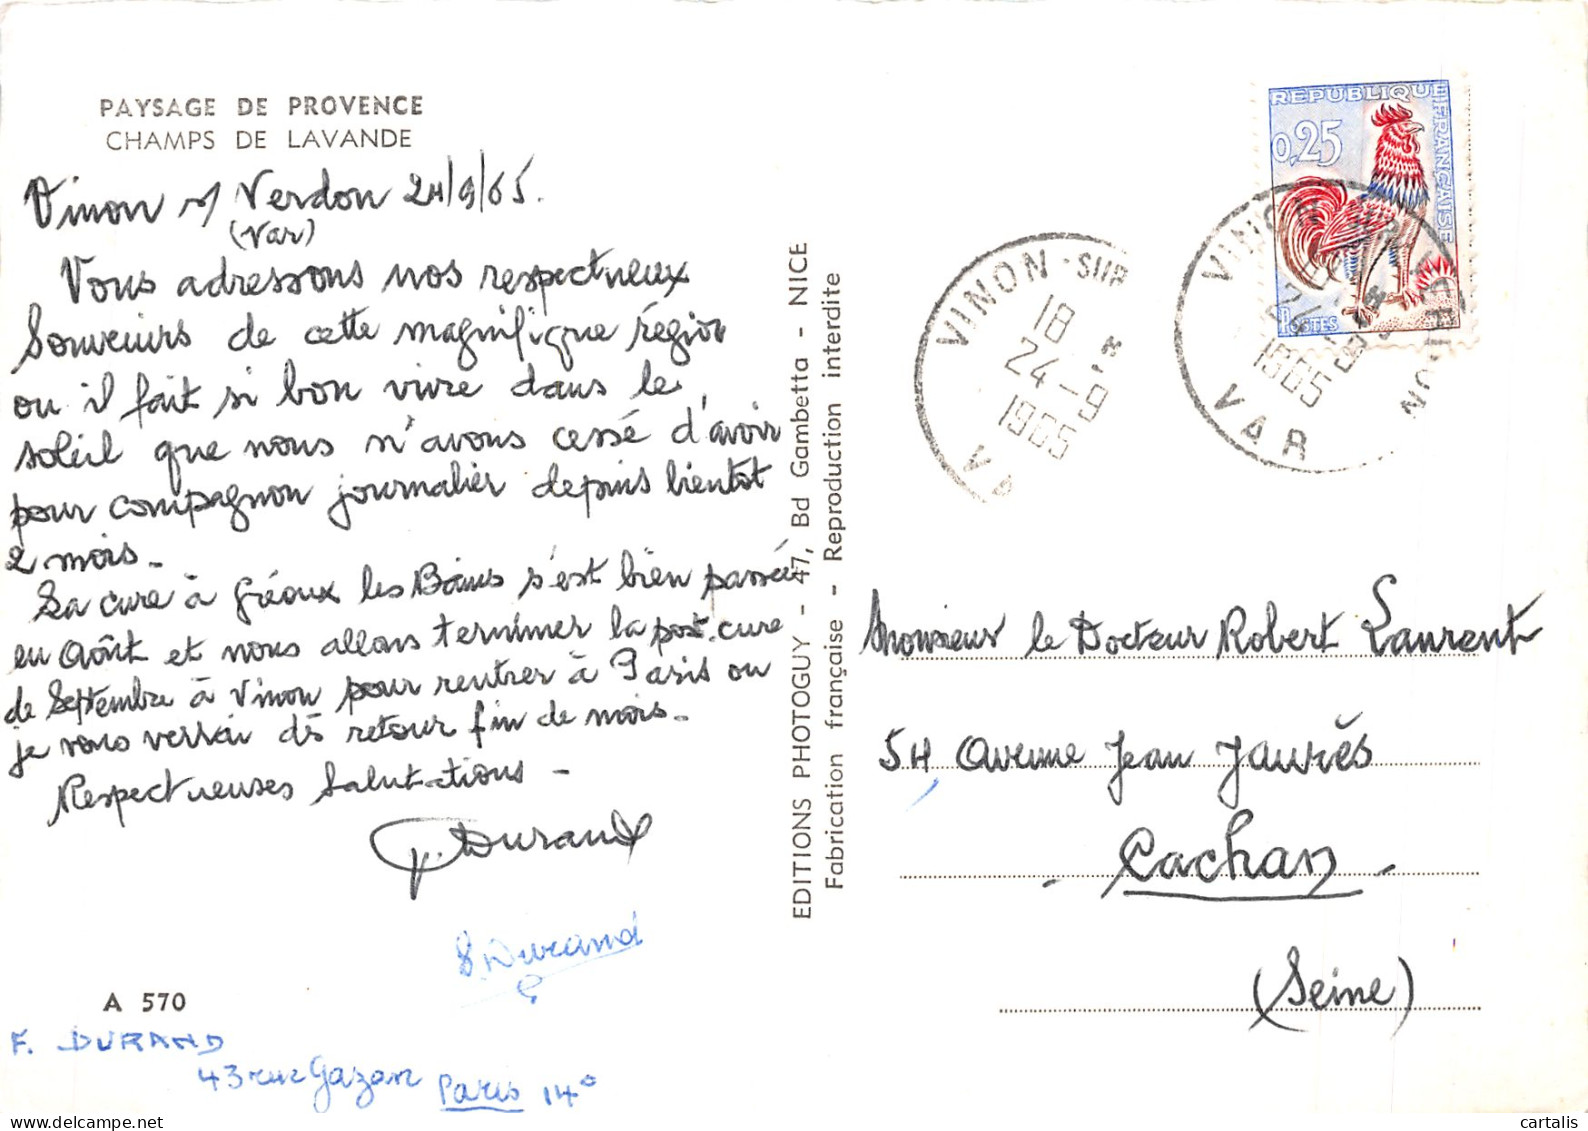 PAYSAGE DE PROVENCE
CHAMPS DE LAVANDE
Vinon s/ Verdon 24/9/65.
(Var)
Vous adressons nos respectueux
Souvenirs de cette magnifique région
ou il fait si bon vivre dans le
soleil que nous n'avons cessé d'avoir
pour compagnon journalier depuis bientot
2 mois.
La cure à Gréoux les Bains s'est bien passée
en Août et nous allons terminer la post.cure
de Septembre à Vinon pour rentrer à Paris ou
je vous verrai dès retour fin de mois.
Respectueuses Salutations -
Durand
S. Durand
A 570
F. DURAND
43 rue Gazan Paris 14°
EDITIONS PHOTOGUY - 47, Bd Gambetta - NICE
Fabrication française - Reproduction interdite
REPUBLIQUE FRANÇAISE
0,25
POSTES
VINON-SUR
18
24-9
1965
VA
VINON-SUR-VERDON
1965
VAR
Monsieur le Docteur Robert Laurent
54 Avenue Jean Jaurès
- Cachan -
(Seine)
cartalis